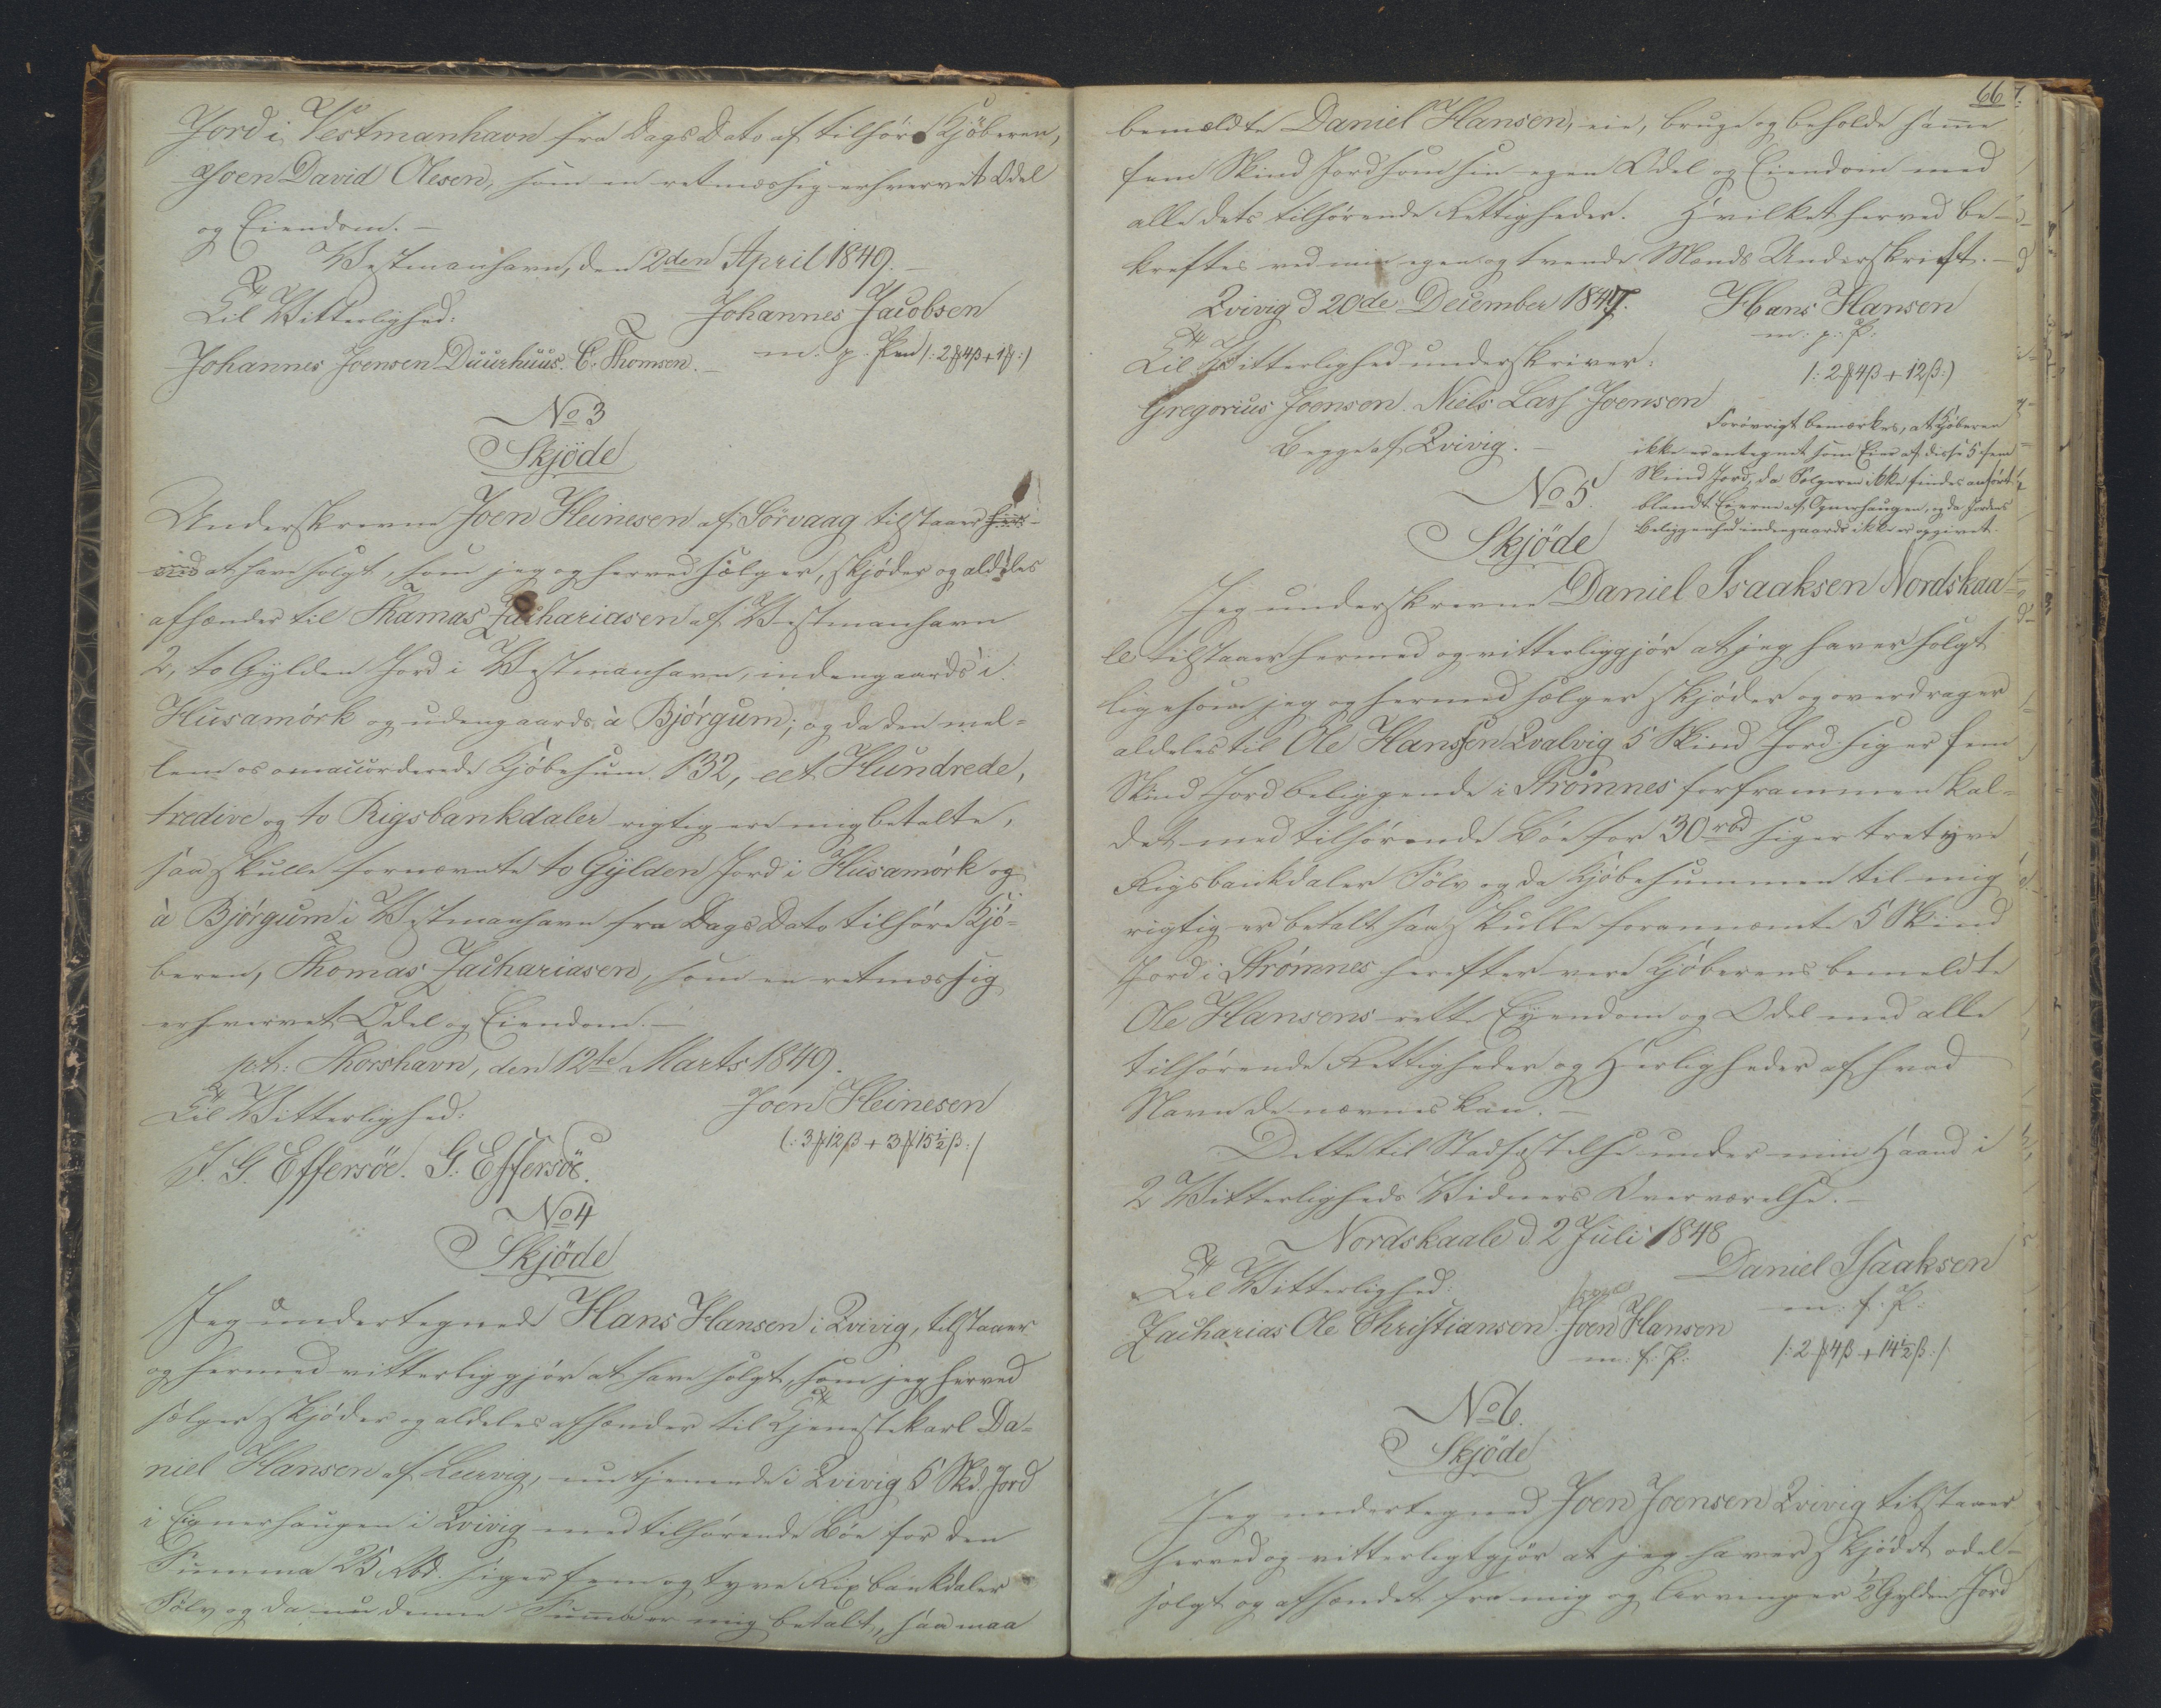 Jord i Vestmanhavn fra Dags Dato af tilhøre Kjöberen,
Joen David Olesen, som en retmæssig erhvervet Odel
og Eiendom. —
Westmanhavn, den 2den April 1849. —
Til Vitterlighed: Johannes Jacobsen
Johannes Joensen Duurhuus. C. Thomsen. — m. p. Pen /: 2 # 4 ß + 1 # :/
No 3
Skjöde
Underskrevne Joen Heinesen af Sörvaag tilstaaer her-
ved at have solgt, som jeg og herved sælger, skjøder og aldeles
afhænder til Thamas Zachariasen af Westmanhavn
2, to Gylden Jord i Westmanhavn, indengaards i
Husamörk og udengaards à Bjórgum; og da den mel-
lem os omaccorderede Kjöbesum 132, eet Hundrede,
tredive og to Rigsbankdaler rigtig ere mig betalte,
saa skulle fornævnte to Gylden Jord i Husamörk og
à Bjórgum i Westmanhavn fra Dags Dato tilhöre Kjö-
beren, Thomas Zachariasen, som en retmæssig
erhvervet Odel og Eiendom. —
p.t. Thorshavn, den 12te Marts 1849.
Til Vitterlighed: Joen Heinesen
J. G. Effersöe. G. Effersöe. (: 3 # 12 ß + 3 # 15½ ß :/
No 4
Skjöde
Jeg undertegnede Hans Hansen i Qvivig, tilstaaer
og hermed vitterliggjör at have solgt, som jeg herved
sælger skjöder og aldeles afhænder til Tjenestekarl Da-
niel Hansen af Leervig, nu tjenende i Qvivig 5 Skd. Jord
i Egnerhaugen i Qvivig med tilhørende Bøe for den
Summa 25 Rbd. siger fem og tyve Rigsbankdaler
Sölv og da nu denne Summa er mig betalt, saa maa
667.
bemældte Daniel Hansen, eie, bruge og beholde samme
fem Skind Jord som sin egen Odel og Eiendom med
alle dets tilhørende Rettigheder. Hvilket herved be-
kreftes ved min egen og tvende Mænds Underskrift. —
Qvivig d 20de December 1847. Hans Hansen
m: p: P:
Til Vitterlighed underskriver: /: 2 # 4 ß + 12 ß :)
Gregorius Joensen. Niels Lass Joensen
Begge af Qvivig. —
Forövrigt bemærkes, at Kjöberen
ikke er antegnet som Eier af disse 5 fem
Skind Jord, da Sælgeren ikke findes anført
blandt Eierne af Egnerhaugen, og da Jordens
Beliggenhed indengaards ikke er opgivet.
No 5.
Skjöde
Jeg underskrevne Daniel Isaaksen Nordskaa-
le tilstaaer hermed og vitterliggjör at jeg haver solgt
ligesom jeg og hermed sælger skjöder og overdrager
aldeles til Ole Hanssen Qvalvig 5 Skind Jord siger fem
Skind Jord beliggende i Strömnes forframmen kal-
det med tilhörende Böe for 30 rbd siger tretyve
Rigsbankdaler Sölv og da Kjöbesummen til mig
rigtig er betalt saa skulle forannæmte 5 Skind
Jord i Strömnes herefter være Kjöberens bemeldte
Ole Hansens rette Eyendom og Odel med alle
tilhørende Rettigheder og Herligheder af hvad
Navn de nævnes kan. —
Dette til Stadfæstelse under min Haand i
2 Vitterligheds Vidners Overværelse. —
Nordskaale d. 2 Juli 1848
Til Vitterlighed: Daniel Isaaksen
m: f. P:
Zacharias Ole Christiansen. Joen Hansen
m: f. P: /: 2 # 4 ß + 14½ ß :/
No 6.
Skjöde
Jeg undertegnede Joen Joensen Qvivig tilstaaer
herved og vitterligtgjör at jeg haver skjödet odel-
solgt og afhændet fra mig og Arvinger ½ Gylden Jord